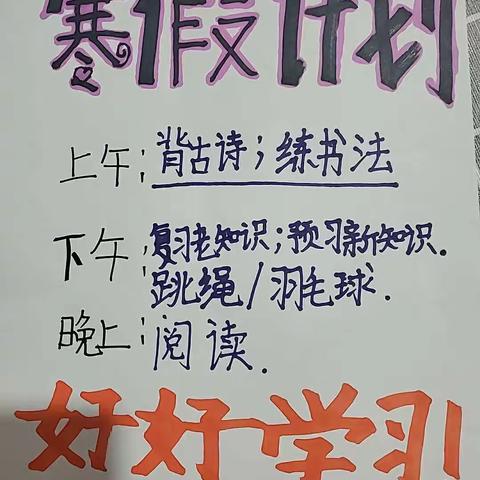 寒假计划
上午：背古诗；练书法
下午：复习老知识；预习新知识.
跳绳/羽毛球.
晚上：阅读.
好好学习